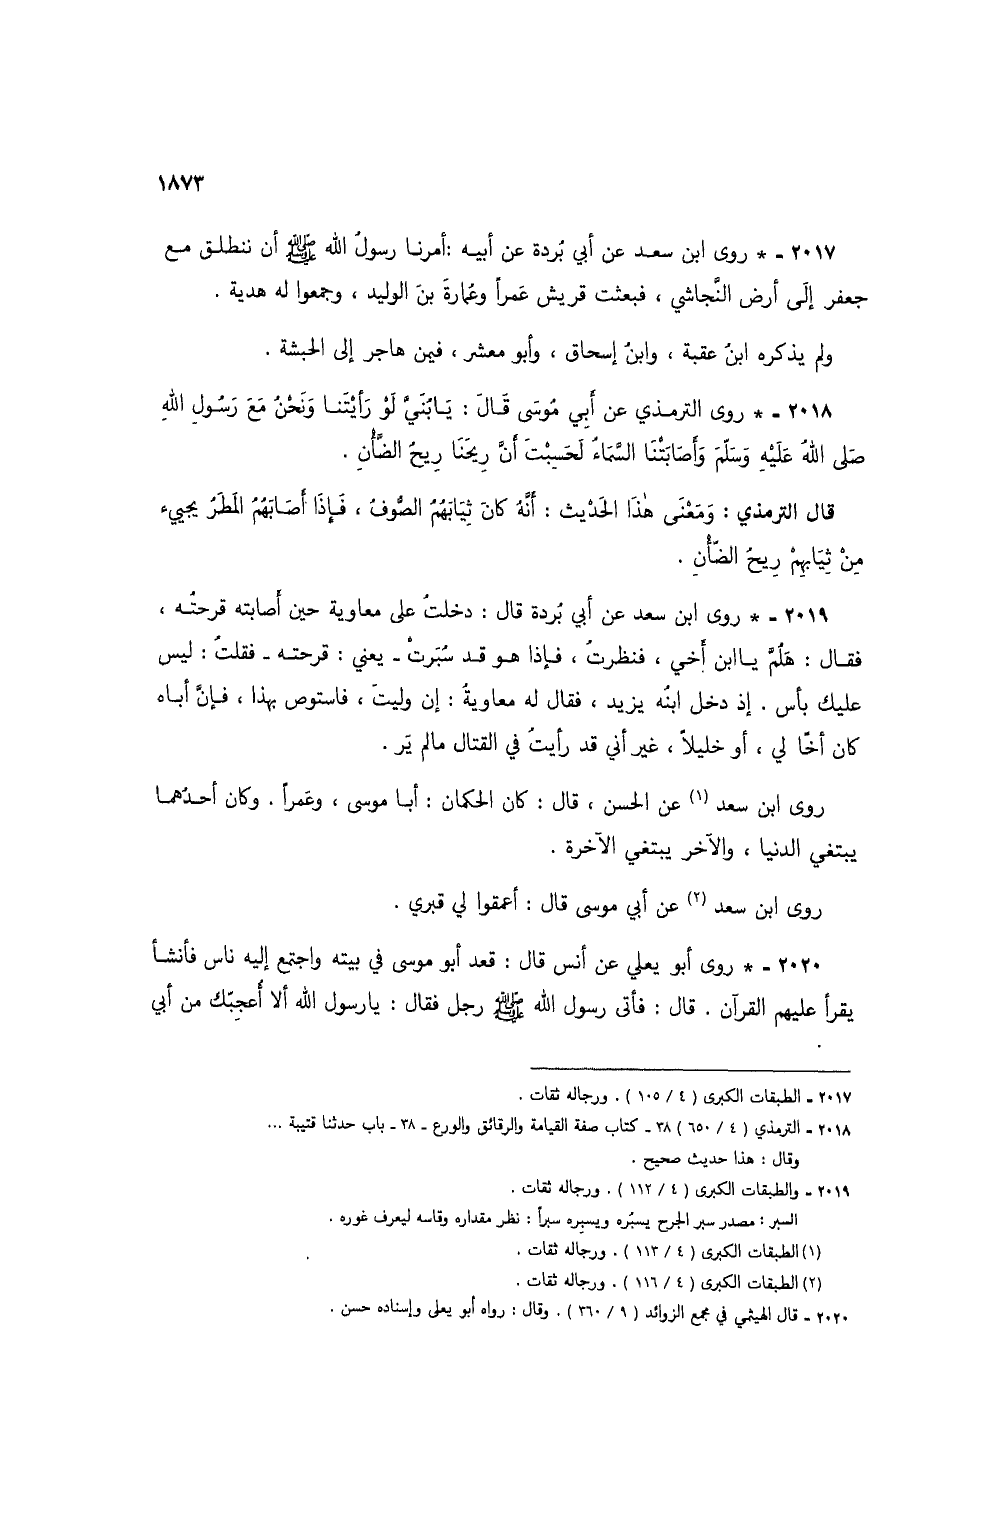 ١٨٧٣
٢٠١٧ ـ * روى ابن سعـد عن أبي بُردة عن أبيـه :أمرنـا رسولُ الله ﷺ أن ننطلـق مـع
جعفر إلَى أرض النَّجاشي ، فبعثت قريش عَمراً وعُمارةَ بنَ الوليد ، وجمعوا له هدية .
ولم يذكره ابنُ عقبة ، وابنُ إسحاق ، وأبو معشر ، فيمن هاجر إلى الحبشة .
٢٠١٨ ـ * روى الترمـذي عن أَبِي مُوسَى قَـالَ : يَـابُنَيَّ لَوْ رَأَيْتَنـا وَنَحْنُ مَعَ رَسُـولِ اللهِ
صَلى اللهُ عَلَيْهِ وَسَلّمَ وَأَصَابَتْنَا السَّمَاءُ لَحَسِبْتَ أَنَّ رِيحَنَا رِيحُ الضَّأْنِ .
قال الترمذي : وَمَعْنَى هٰذَا الحَدْيث : أَنَّهُ كانَ ثِيَابَهُمُ الصُّوفُ ، فَـإِذَا أَصَـابَهُمُ المَطَرُ يجييء
مِنْ ثِيَابِهِمْ رِيحُ الضّأْنِ .
٢٠١٩ ـ * روى ابن سعد عن أبي بُردة قال : دخلتُ على معاوية حين أَصابته قرحتُـه ،
فقـال : هَلُمَّ يـاابن أَخي ، فنظرتُ ، فـإذا هـو قـد سُبَرتْ ـ يعني : قرحتـه ـ فقلتُ : ليس
عليك بأس . إذ دخل ابنُه يزيد ، فقال له معاويةُ : إن وليتَ ، فاستوص بهذا ، فـإنَّ أبـاه
كان أخًا لي ، أو خليلاً ، غير أني قد رأيتُ في القتال مالم يَر .
روى ابن سعد (١) عن الحسن ، قال : كان الحكمان : أبـا موسى ، وعَمراً . وكان أحـدُهمـا
يبتغي الدنيا ، والآخر يبتغي الآخرة .
روى ابن سعد (٢) عن أبي موسى قال : أعمقوا لي قبري .
٢٠٢٠ ـ * روى أبو يعلي عن أنس قال : قعد أبو موسى في بيته واجتمع إليه ناس فأنشـأ
يقرأ عليهم القرآن . قال : فأتى رسول الله ﷺ رجل فقال : يارسول الله ألا أُعجِبّك من أبي
٢٠١٧ ـ الطبقات الكبرى ( ٤ / ١٠٥ ) . ورجاله ثقات .
٢٠١٨ ـ الترمذي ( ٤ / ٦٥٠ ) ٣٨ ـ كتاب صفة القيامة والرقائق والورع ـ ٣٨ ـ باب حدثنا قتيبة ...
وقال : هذا حديث صحيح .
٢٠١٩ ـ والطبقات الكبرى ( ٤ / ١١٢ ) . ورجاله ثقات .
السبر : مصدر سبر الجرح يسبُره ويسبِره سبراً : نظر مقداره وقاسه ليعرف غوره .
(١) الطبقات الكبرى ( ٤ / ١١٣ ) . ورجاله ثقات .
(٢) الطبقات الكبرى ( ٤ / ١١٦ ) . ورجاله ثقات .
٢٠٢٠ ـ قال الهيثمي في مجمع الزوائد ( ٩ / ٣٦٠ ) . وقال : رواه أبو يعلى وإسناده حسن .